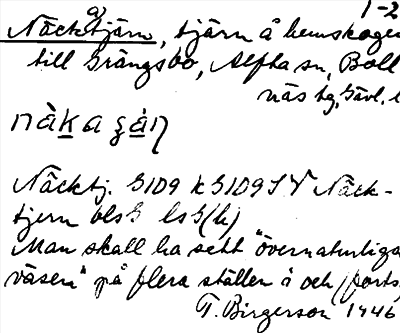 1-2
a)
Näcktjärn, tjärn å hemskogen
till Grängsbo, Alfta sn, Boll-
näs tg, Gävl. l
Näcktj. G109 k G109 SV Näck-
tjern bls G ls G(k)
Man skall ha sett "övernaturliga
väsen" på flera ställen i och (forts.
T. Birgerson 1946